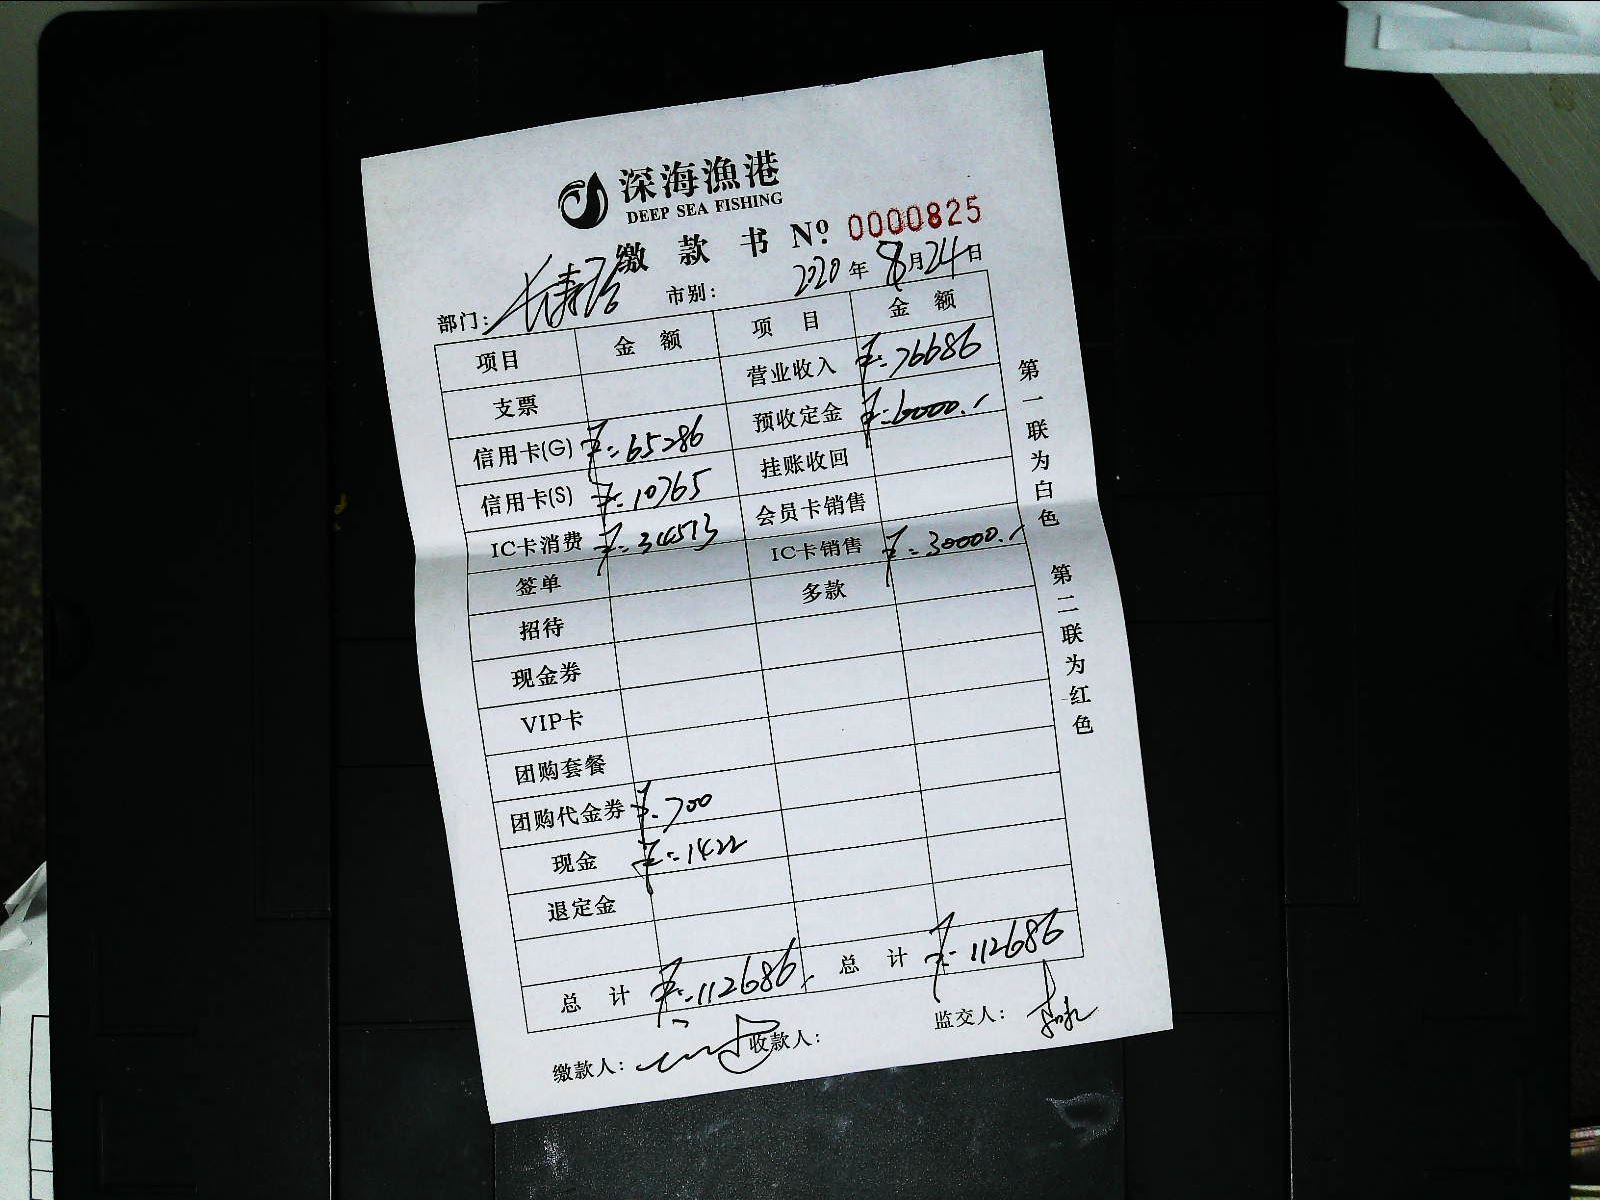 深海漁港
DEEP SEA FISHING
缴款书 Nº 0000825
部门: 长寿路 市别: 2020年8月24日
项目 金额 项目 金额
支票 营业收入 ¥:76686
信用卡(G) ¥:65286 预收定金 ¥:6000.-
信用卡(S) ¥:10765 挂账收回
IC卡消费 ¥:34513 会员卡销售
签单 IC卡销售 ¥:30000.-
招待 多款
现金券
VIP卡
团购套餐
团购代金券 ¥:700
现金 ¥:1422
退定金
总计 ¥:112686 总计 ¥:112686
缴款人: 收款人: 监交人:
第一联为白色 第二联为红色